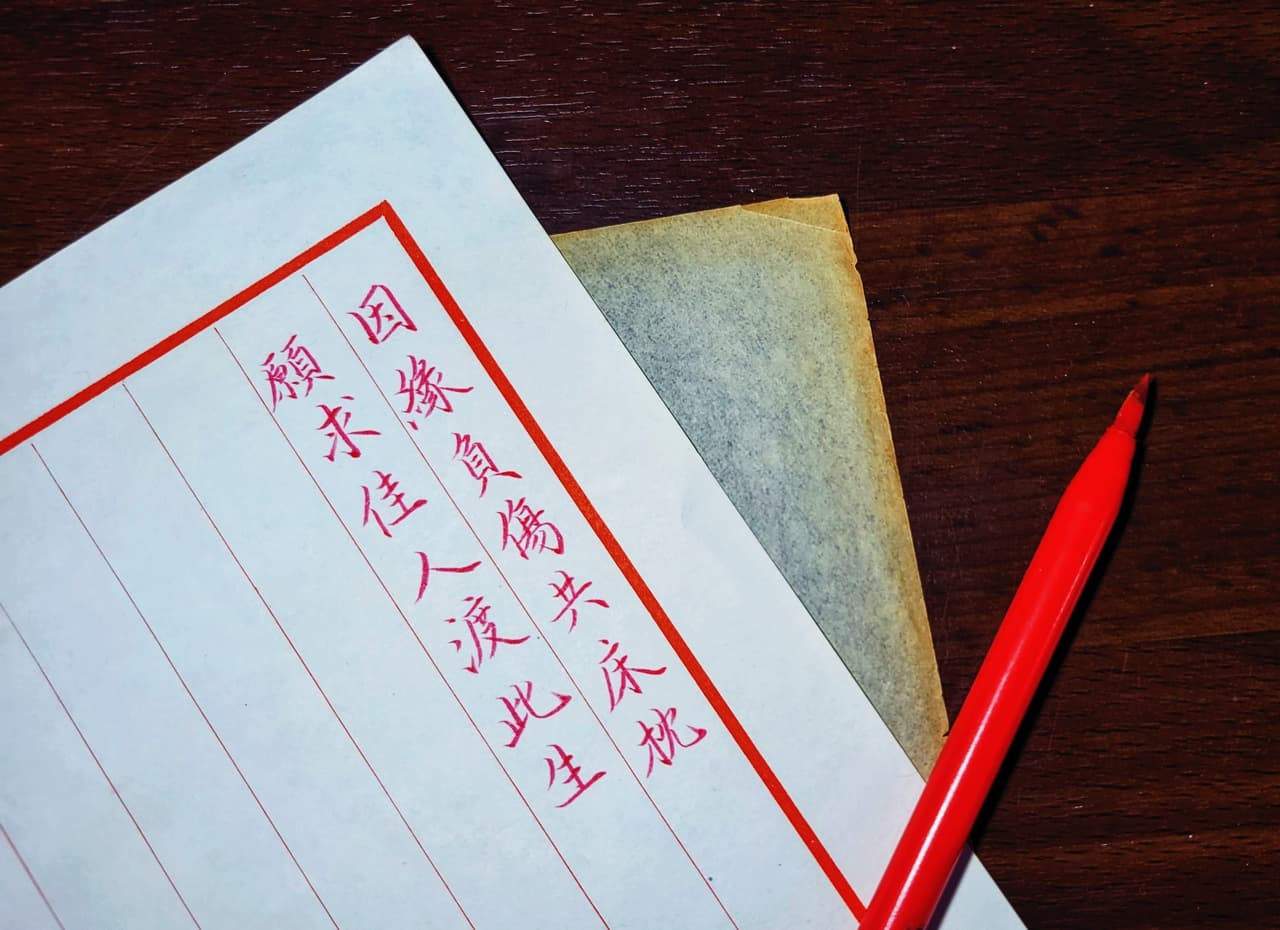 因緣負傷共床枕
願求佳人渡此生